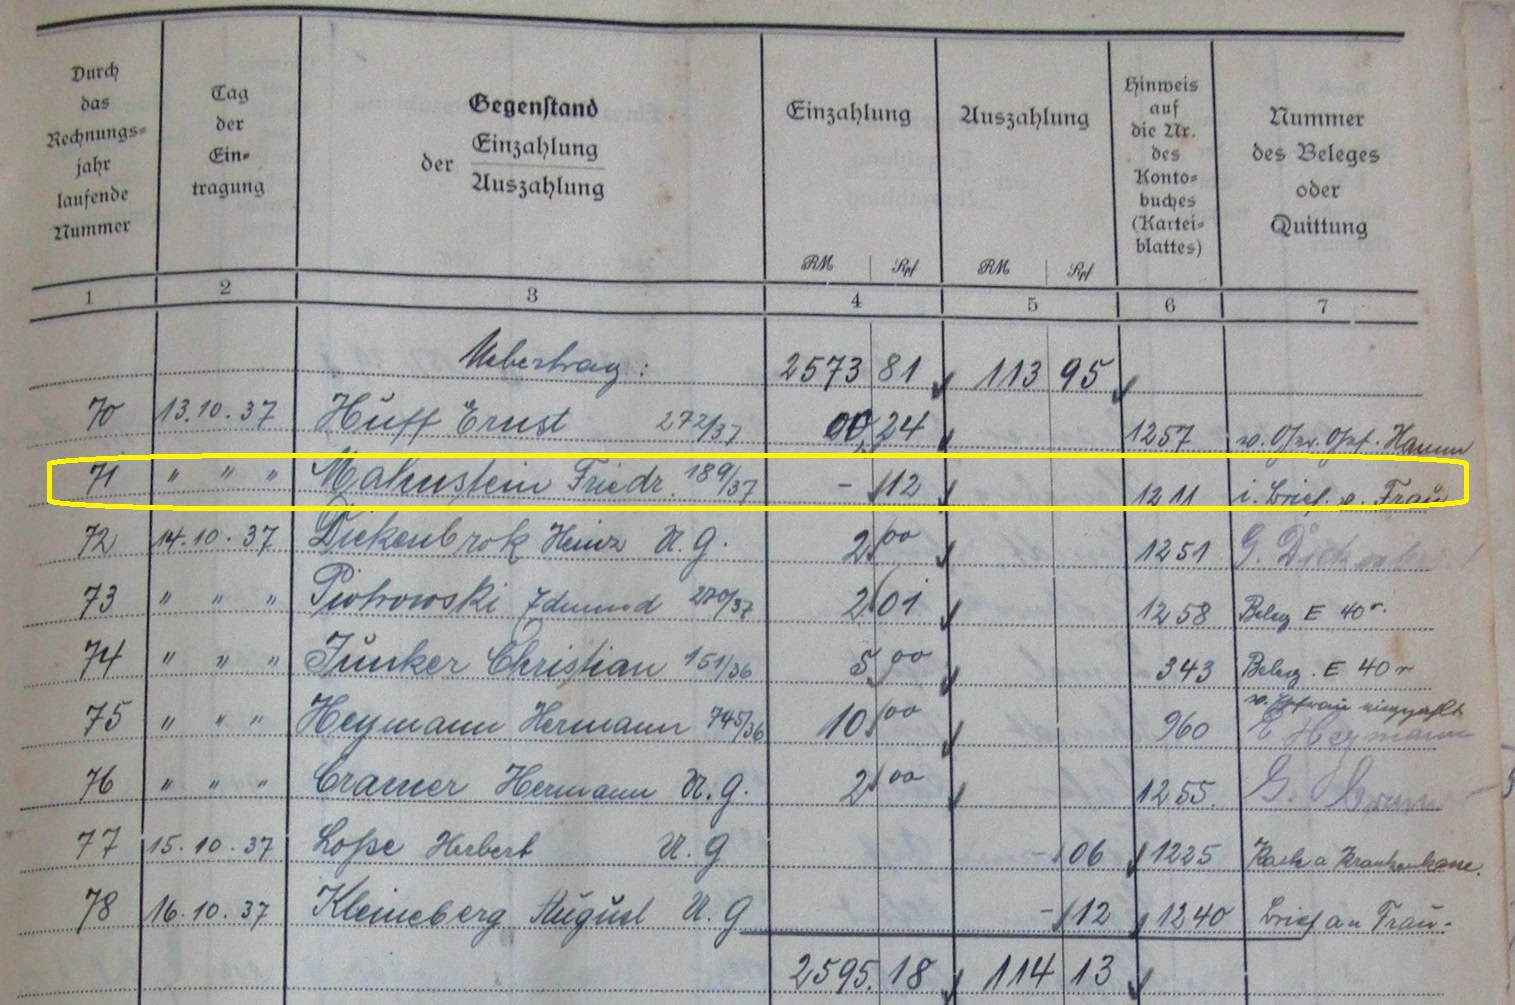 Durch das Rechnungs= jahr laufende Nummer
Tag der Ein= tragung
Gegenstand der Einzahlung Auszahlung
Einzahlung
Auszahlung
Hinweis auf die Nr. des Konto= buches (Kartei= blattes)
Nummer des Beleges oder Quittung
RM Rpf RM Rpf
1 2 3 4 5 6 7
Uebertrag: 2573 81 113 95
70 13.10.37 Huff Ernst 272/37 00,24 1257 Hamm
71 " " " Mahnstein Friedr. 189/37 - 12 1211 i. Brief. v. Frau
72 14.10.37 Dickenbrok Heinz U.g. 2 00 1251 G.
73 " " " Piotrowski Edmund 270/37 2 01 1258 Beleg E 40r.
74 " " " Junker Christian 151/36 5 00 343 Beleg. E 40 r
75 " " " Heymann Hermann 745/36 10 00 960 v. Ehefrau eingezahlt Heymann
76 " " " Cramer Hermann U.g. 2 00 1255. G.
77 15.10.37 Loße Herbert U.g - 06 1225 a Krankenkasse.
78 16.10.37 Kleineberg August U.g - 12 1240 Brief an Frau.
2595. 18 114 13